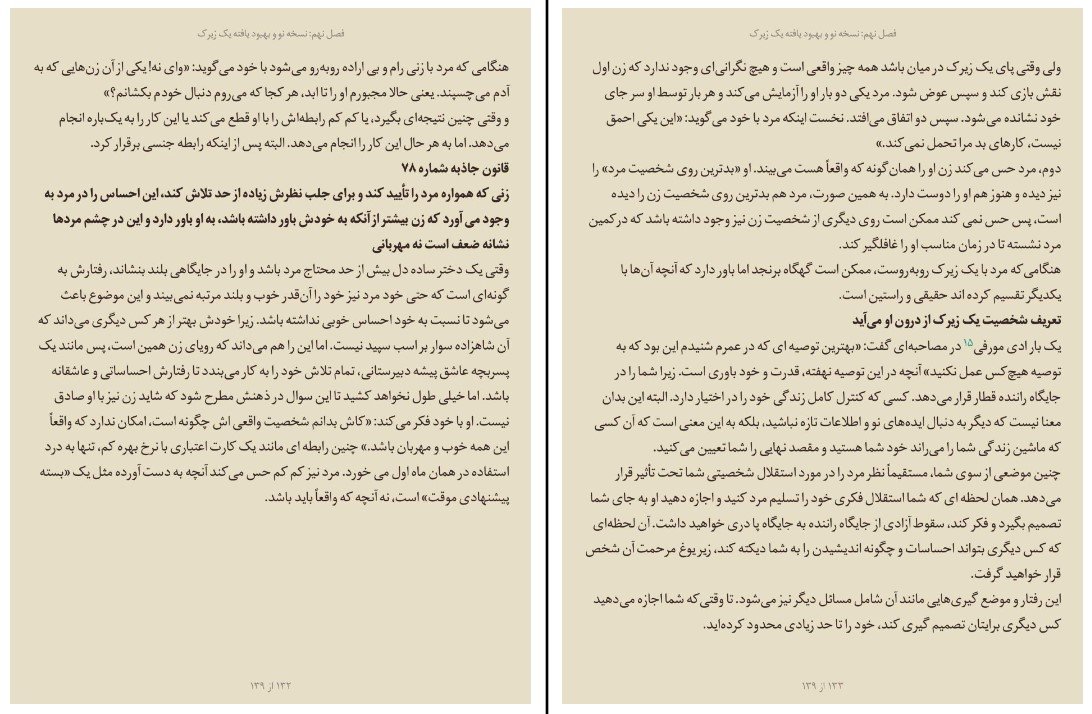 فصل نهم: نسخه نو و بهبود یافته یک زیرک
هنگامی که مرد با زنی رام و بی اراده روبه‌رو می‌شود با خود می‌گوید: «وای نه! یکی از آن زن‌هایی که به
آدم می‌چسپند. یعنی حالا مجبورم او را تا ابد، هر کجا که می‌روم دنبال خودم بکشانم؟»
و وقتی چنین نتیجه‌ای بگیرد، یا کم کم رابطه‌اش را با او قطع می‌کند یا این کار را به یک‌باره انجام
می‌دهد. اما به هر حال این کار را انجام می‌دهد. البته پس از اینکه رابطه جنسی برقرار کرد.
قانون جاذبه شماره ۷۸
زنی که همواره مرد را تأیید کند و برای جلب نظرش زیاده از حد تلاش کند، این احساس را در مرد به
وجود می آورد که زن بیشتر از آنکه به خودش باور داشته باشد، به او باور دارد و این در چشم مردها
نشانه ضعف است نه مهربانی
وقتی یک دختر ساده دل بیش از حد محتاج مرد باشد و او را در جایگاهی بلند بنشاند، رفتارش به
گونه‌ای است که حتی خود مرد نیز خود را آن‌قدر خوب و بلند مرتبه نمی‌بیند و این موضوع باعث
می‌شود تا نسبت به خود احساس خوبی نداشته باشد. زیرا خودش بهتر از هر کس دیگری می‌داند که
آن شاهزاده سوار بر اسب سپید نیست. اما این را هم می‌داند که رویای زن همین است، پس مانند یک
پسربچه عاشق پیشه دبیرستانی، تمام تلاش خود را به کار می‌بندد تا رفتارش احساساتی و عاشقانه
باشد. اما خیلی طول نخواهد کشید تا این سوال در ذهنش مطرح شود که شاید زن نیز با او صادق
نیست. او با خود فکر می‌کند: «کاش بدانم شخصیت واقعی اش چگونه است، امکان ندارد که واقعاً
این همه خوب و مهربان باشد.» چنین رابطه ای مانند یک کارت اعتباری با نرخ بهره کم، تنها به درد
استفاده در همان ماه اول می خورد. مرد نیز کم کم حس می‌کند آنچه به دست آورده مثل یک «بسته
پیشنهادی موقت» است، نه آنچه که واقعاً باید باشد.
۱۳۲ از ۱۳۹
فصل نهم: نسخه نو و بهبود یافته یک زیرک
ولی وقتی پای یک زیرک در میان باشد همه چیز واقعی است و هیچ نگرانی‌ای وجود ندارد که زن اول
نقش بازی کند و سپس عوض شود. مرد یکی دو بار او را آزمایش می‌کند و هر بار توسط او سر جای
خود نشانده می‌شود. سپس دو اتفاق می‌افتد. نخست اینکه مرد با خود می‌گوید: «این یکی احمق
نیست، کارهای بد مرا تحمل نمی‌کند.»
دوم، مرد حس می‌کند زن او را همان‌گونه که واقعاً هست می‌بیند. او «بدترین روی شخصیت مرد» را
نیز دیده و هنوز هم او را دوست دارد. به همین صورت، مرد هم بدترین روی شخصیت زن را دیده
است، پس حس نمی کند ممکن است روی دیگری از شخصیت زن نیز وجود داشته باشد که در کمین
مرد نشسته تا در زمان مناسب او را غافلگیر کند.
هنگامی‌که مرد با یک زیرک روبه‌روست، ممکن است گهگاه برنجد اما باور دارد که آنچه آن‌ها با
یکدیگر تقسیم کرده اند حقیقی و راستین است.
تعریف شخصیت یک زیرک از درون او می‌آید
یک بار ادی مورفی۱۵ در مصاحبه‌ای گفت: «بهترین توصیه ای که در عمرم شنیدم این بود که به
توصیه هیچ‌کس عمل نکنید» آنچه در این توصیه نهفته، قدرت و خود باوری است. زیرا شما را در
جایگاه راننده قطار قرار می‌دهد. کسی که کنترل کامل زندگی خود را در اختیار دارد. البته این بدان
معنا نیست که دیگر به دنبال ایده‌های نو و اطلاعات تازه نباشید، بلکه به این معنی است که آن کسی
که ماشین زندگی شما را می‌راند خود شما هستید و مقصد نهایی را شما تعیین می‌کنید.
چنین موضعی از سوی شما، مستقیماً نظر مرد را در مورد استقلال شخصیتی شما تحت تأثیر قرار
می‌دهد. همان لحظه ای که شما استقلال فکری خود را تسلیم مرد کنید و اجازه دهید او به جای شما
تصمیم بگیرد و فکر کند، سقوط آزادی از جایگاه راننده به جایگاه پا دری خواهید داشت. آن لحظه‌ای
که کس دیگری بتواند احساسات و چگونه اندیشیدن را به شما دیکته کند، زیر یوغ مرحمت آن شخص
قرار خواهید گرفت.
این رفتار و موضع گیری‌هایی مانند آن شامل مسائل دیگر نیز می‌شود. تا وقتی‌که شما اجازه می‌دهید
کس دیگری برایتان تصمیم گیری کند، خود را تا حد زیادی محدود کرده‌اید.
۱۳۳ از ۱۳۹